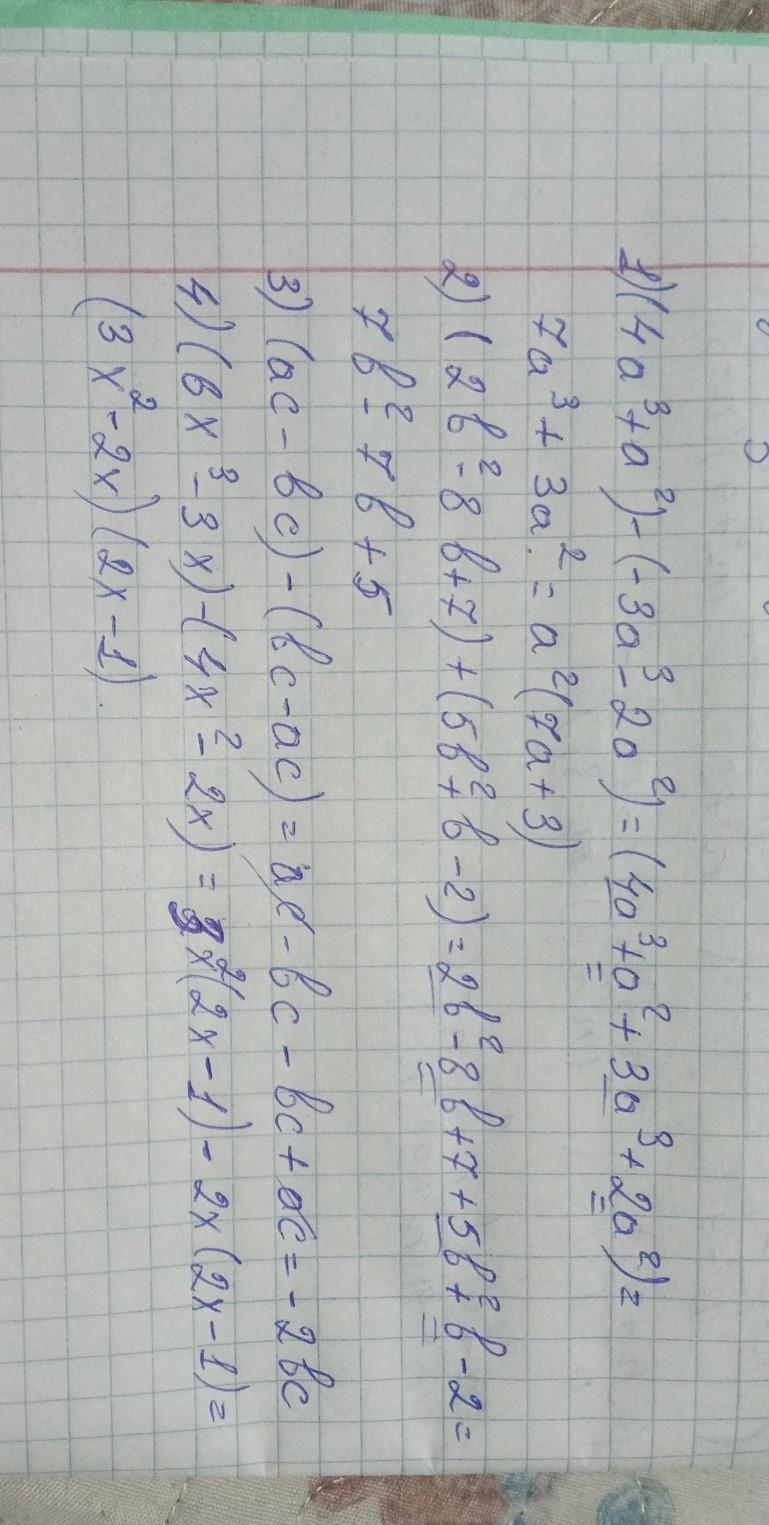 1) (4a³+a²)-(-3a³-2a²)=(4a³+a²+3a³+2a²)=
7a³+3a²=a²(7a+3)
2) (2b²-8b+7)+(5b²+b-2)=2b²-8b+7+5b²+b-2=
7b²-7b+5
3) (ac-bc)-(bc-ac)=ac-bc-bc+ac=-2bc
4) (6x³-3x)-(4x²-2x)=3x²(2x-1)-2x(2x-1)=
(3x²-2x)(2x-1).